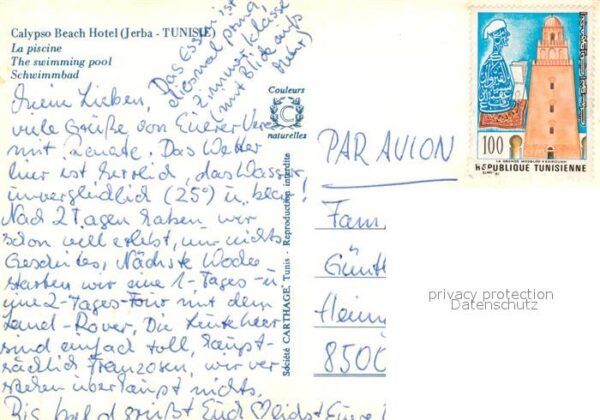 Calypso Beach Hotel (Jerba - TUNISIE)
La piscine
The swimming pool
Schwimmbad
Das Essen ist
diesmal prima,
Zimmer Klasse
(mit Blick aufs
Meer)
Meine Lieben,
viele Grüße von Eurer Vere
mit Renate. Das Wetter
hier ist herrlich, das Wasser
unvergleichlich (25°) u. klar!
Nach 2 Tagen haben wir
schon viel erlebt, nur nichts
Gescheites. Nächste Woche
starten wir eine 1-Tages- u.
eine 2-Tages-Tour mit dem
Land-Rover. Die Leute hier
sind einfach toll, haupt-
sächlich Franzosen, wir ver-
stehen überhaupt nichts.
Bis bald grüßt Euch Eure
Couleurs
C
naturelles
Société CARTHAGE, Tunis - Reproduction interdite
PAR AVION
100
LA GRANDE MOSQUEE KAIROUAN
REPUBLIQUE TUNISIENNE
Fam.
Günth
Heinr
8500
privacy protection
Datenschutz